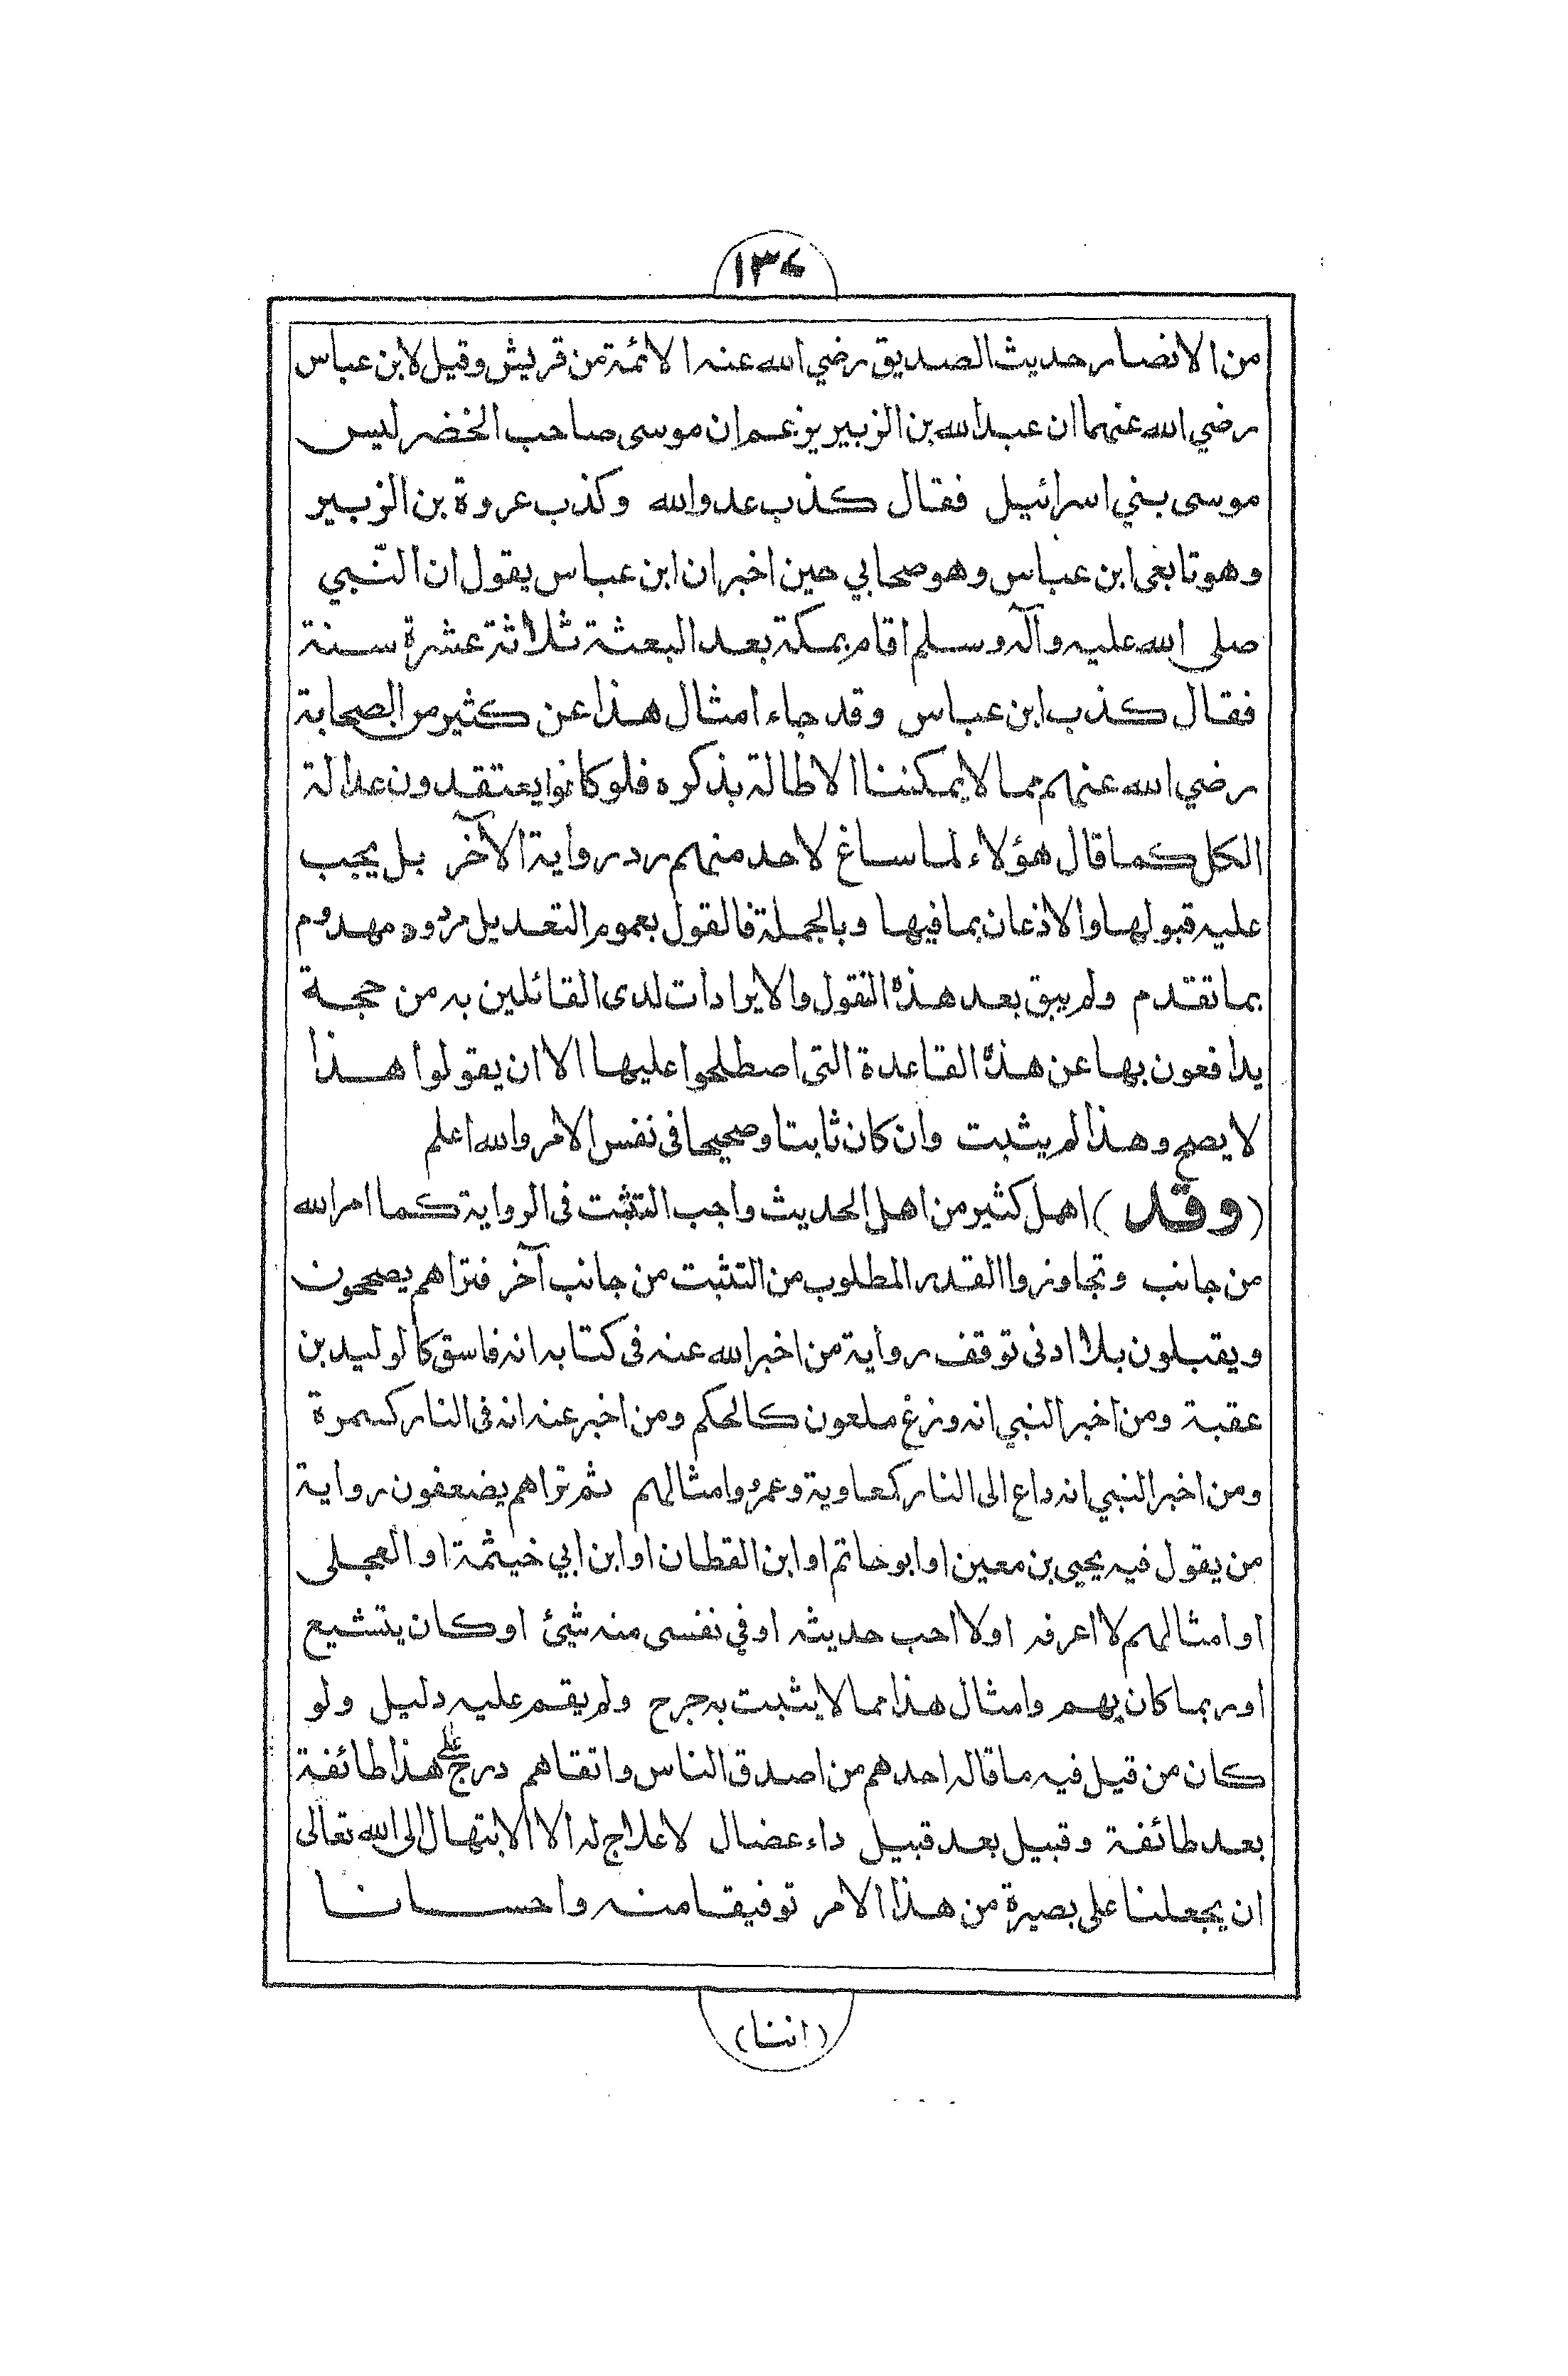 ١٣٤
من الانصار حديث الصديق رضي الله عنه الائمة من قريش وقيل لابن عباس
رضي الله عنهما ان عبد الله بن الزبير يزعم ان موسى صاحب الخضر ليس
موسى بني اسرائيل فقال كذب عدو الله وكذب عروة بن الزبير
وهو تابعى ابن عباس وهو صحابي حين اخبر ان ابن عباس يقول ان النّبي
صلى الله عليه وآله وسلم اقام بمكة بعد البعثة ثلاثة عشرة سنة
فقال كذب ابن عباس وقد جاء امثال هذا عن كثير من الصحابة
رضي الله عنهم مما لا يمكننا الاطالة بذكره فلو كانوا يعتقدون عدالة
الكل كما قال هؤلاء لما ساغ لاحد منهم رد رواية الآخر بل يجب
عليه قبولها والاذعان بما فيها وبالجملة فالقول بعموم التعديل مردود مهدوم
بما تقدم ولم يبق بعد هذه النقول والايرادات لدى القائلين به من حجة
يدافعون بها عن هذه القاعدة التى اصطلحوا عليها الا ان يقولوا هذا
لا يصح وهذا لم يثبت وان كان ثابتا وصحيحا فى نفس الامر والله اعلم
(وقد) اهمل كثير من اهل الحديث واجب التثبت فى الرواية كما امر الله
من جانب وتجاوزوا القدر المطلوب من التثبت من جانب آخر فتراهم يصححون
ويقبلون بلا ادنى توقف رواية من اخبر الله عنه فى كتابه انه فاسق كالوليد بن
عقبة ومن اخبر النبي انه وزغ ملعون كالحكم ومن اخبر عنه انه فى النار كسمرة
ومن اخبر النبي انه داع الى النار كمعاوية وعمرو وامثالهم ثم تراهم يضعفون رواية
من يقول فيه يحيى بن معين او ابو حاتم او ابن القطان او ابن ابي خيثمة او العجلى
او امثالهم لا اعرفه او لا احب حديثه او في نفسى منه شيئ او كان يتشيع
او ربما كان يهم وامثال هذا مما لا يثبت به جرح ولم يقم عليه دليل ولو
كان من قيل فيه ما قاله احدهم من اصدق الناس واتقاهم درج على هذا طائفة
بعد طائفة وقبيل بعد قبيل داء عضال لا علاج له الا الابتهال الى الله تعالى
ان يجعلنا على بصيرة من هذا الامر توفيقا منه واحسانا
(اننا)